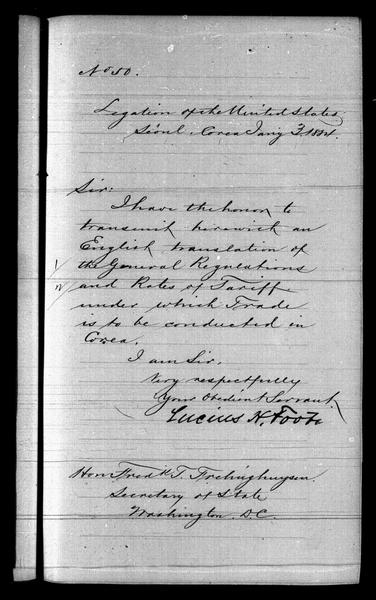 No 50.
Legation of the United States
Séoul, Corea Jany 3, 1884.
Sir:
I have the honor to
transmit herewith an
English translation of
1/ the General Regulations
2/ and Rates of Tariff
under which Trade
is to be conducted in
Corea.
I am Sir,
Very respectfully
Your Obedient Servant,
Lucius H. Foote
Hon Fredk T. Frelinghuysen.
Secretary of State
Washington D.C.